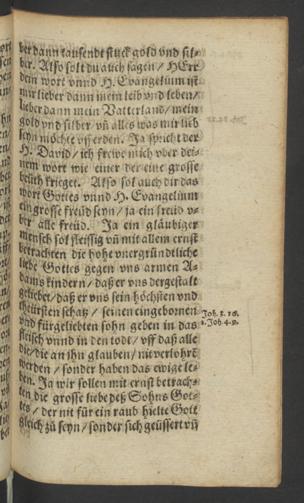 ber dann tausendt stuck gold vnd sil-
ber. Also solt du auch sagen / HErr
dein wort vnnd H. Evangelium ist
mir lieber dann mein leib vnd leben/
lieber dann mein Vatterland/ mein
gold vnd silber/ vñ alles was mir lieb
seyn möchte vff erden. Ja spricht der
H. David / ich frewe mich vber dei-
nem wort wie einer der eine grosse
beüth krieget. Also sol auch dir das
wort Gottes vnnd H. Evangelium
ein grosse freüd seyn / ja ein freüd v-
ber alle freüd. Ja ein gläubiger
mensch sol fleissig vñ mit allem ernst
betrachten die hohe vnergründtliche
liebe Gottes gegen vns armen A-
dams kindern / daß er vns dergestalt
geliebet/ daß er vns sein höchsten vnd
thürsten schatz / seinen eingebornen
vnd fürgeliebten sohn geben in das
fleisch vnnd in den todt / vff daß alle
die/ die an ihn glauben/ nit verlohrẽ
werden / sonder haben das ewige le-
ben. Ja wir sollen mit ernst betrach-
ten die grosse liebe deß Sohns Got-
tes / der nit für ein raub hielte Gott
gleich zů seyn / sonder sich geüssert vñ
Joh. 3. 16.
1. Joh. 4. 9.